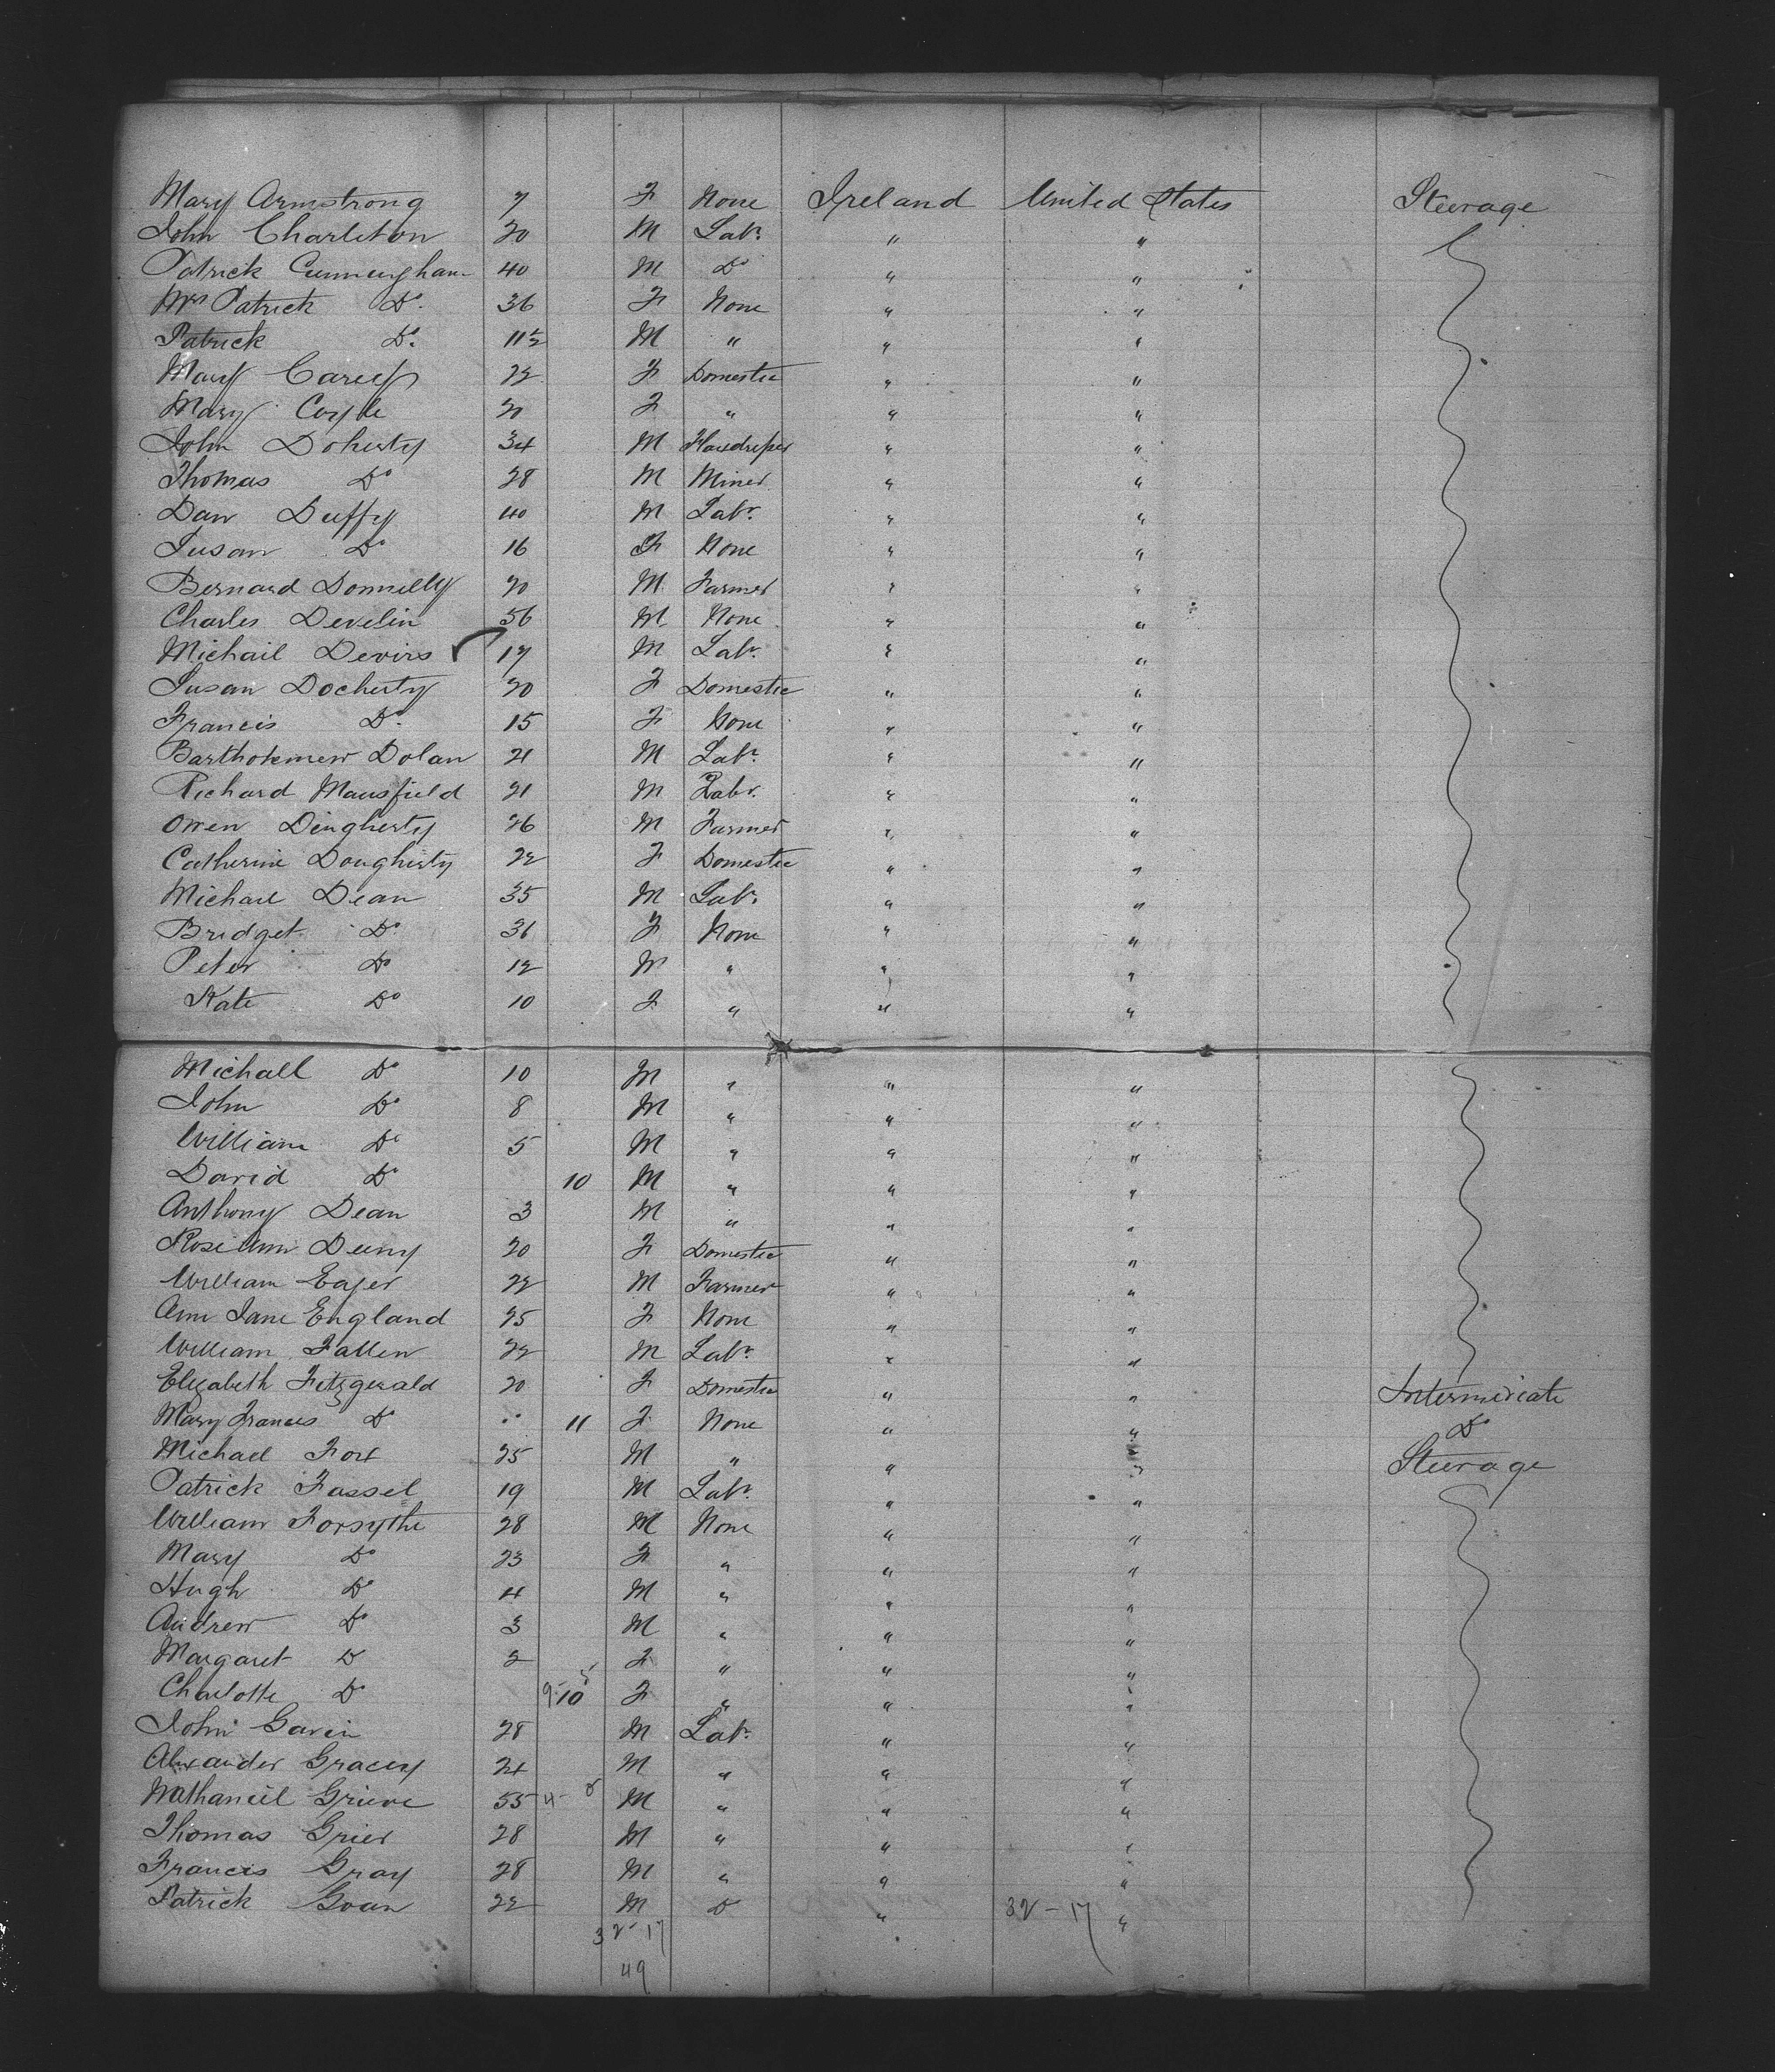 Mary Armstrong 7 F None Ireland United States Steerage
John Charleton 20 M Labr. " "
Patrick Cunningham 40 M Do " "
Mrs Patrick Do. 36 F None " "
Patrick Do. 11½ M " " "
Mary Carey 22 F Domestic " "
Mary Coyle 20 F " " "
John Doherty 34 M " "
Thomas Do 28 M Miner " "
Dan Duffy 40 M Labr. " "
Susan Do 16 F None " "
Bernard Donnelly 20 M Farmer " "
Charles Develin 56 M None " "
Michail Devirs 17 M Labr. " "
Susan Docherty 20 F Domestic " "
Francis Do. 15 F None " "
Bartholemew Dolan 21 M Labr. " "
Richard Mansfield 21 M Labr. " "
Owen Dougherty 26 M Farmer " "
Catherine Doughirty 22 F Domestic " "
Michael Dean 35 M Labr. " "
Bridget Do. 31 F None " "
Peter Do 12 M " " "
Kate Do 10 F " " "
Michall Do 10 M " " "
John Do 8 M " " "
William Do 5 M " " "
David Do 10 M " " "
Anthony Dean 3 M " " "
Rose Ann Deeny 20 F Domestic " "
William Eager 22 M Farmer " "
Ann Jane England 25 F None " "
William Fallen 22 M Labr. " "
Elizabeth Fitzgerald 20 F Domestic " " Intermediate
Mary Frances Do " 11 F None " " Do
Michael Fox 25 M " " " Steerage
Patrick Fassel 19 M Labr. " "
William Forsythe 28 M None " "
Mary Do 23 F " " "
Hugh Do 4 M " " "
Andrew Do 3 M " " "
Margaret D 2 F " " "
Charlotte Do 9-10 5 F " " "
John Gavin 28 M Labr. " "
Alexander Gracey 24 M " " "
Nathaniel Grieve 55 4- 8 M " " "
Thomas Grier 28 M " " "
Francis Gray 28 M " " "
Patrick Goan 22 M D " 32-17 "
32-17
49